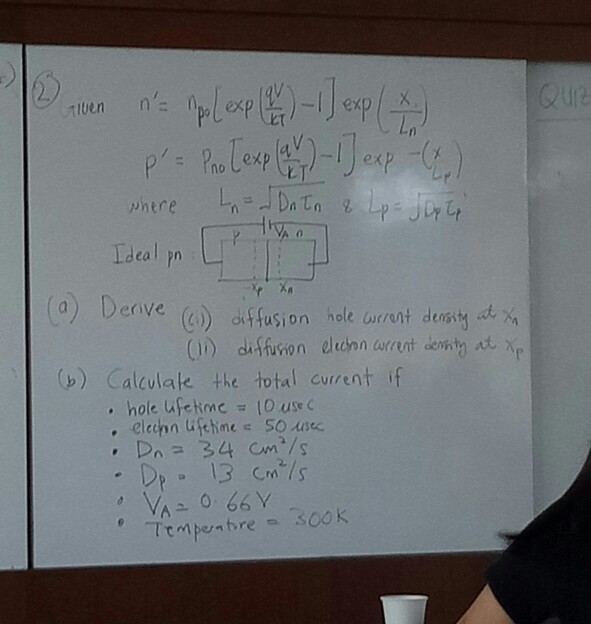 ②
Given n' = n_po [exp(qV/kT) - 1] exp(x/L_n)
p' = P_no [exp(qV/kT) - 1] exp -(x/L_p)
where L_n = √D_n τ_n & L_p = √D_p τ_p
Ideal pn
p V_A n
-x_p x_n
(a) Derive (i) diffusion hole current density at x_n
(ii) diffusion electron current density at x_p
(b) Calculate the total current if
• hole lifetime = 10 usec
• electron lifetime = 50 usec
• D_n = 34 cm²/s
• D_p = 13 cm²/s
• V_A = 0.66 V
• Temperature = 300K
QUIZ